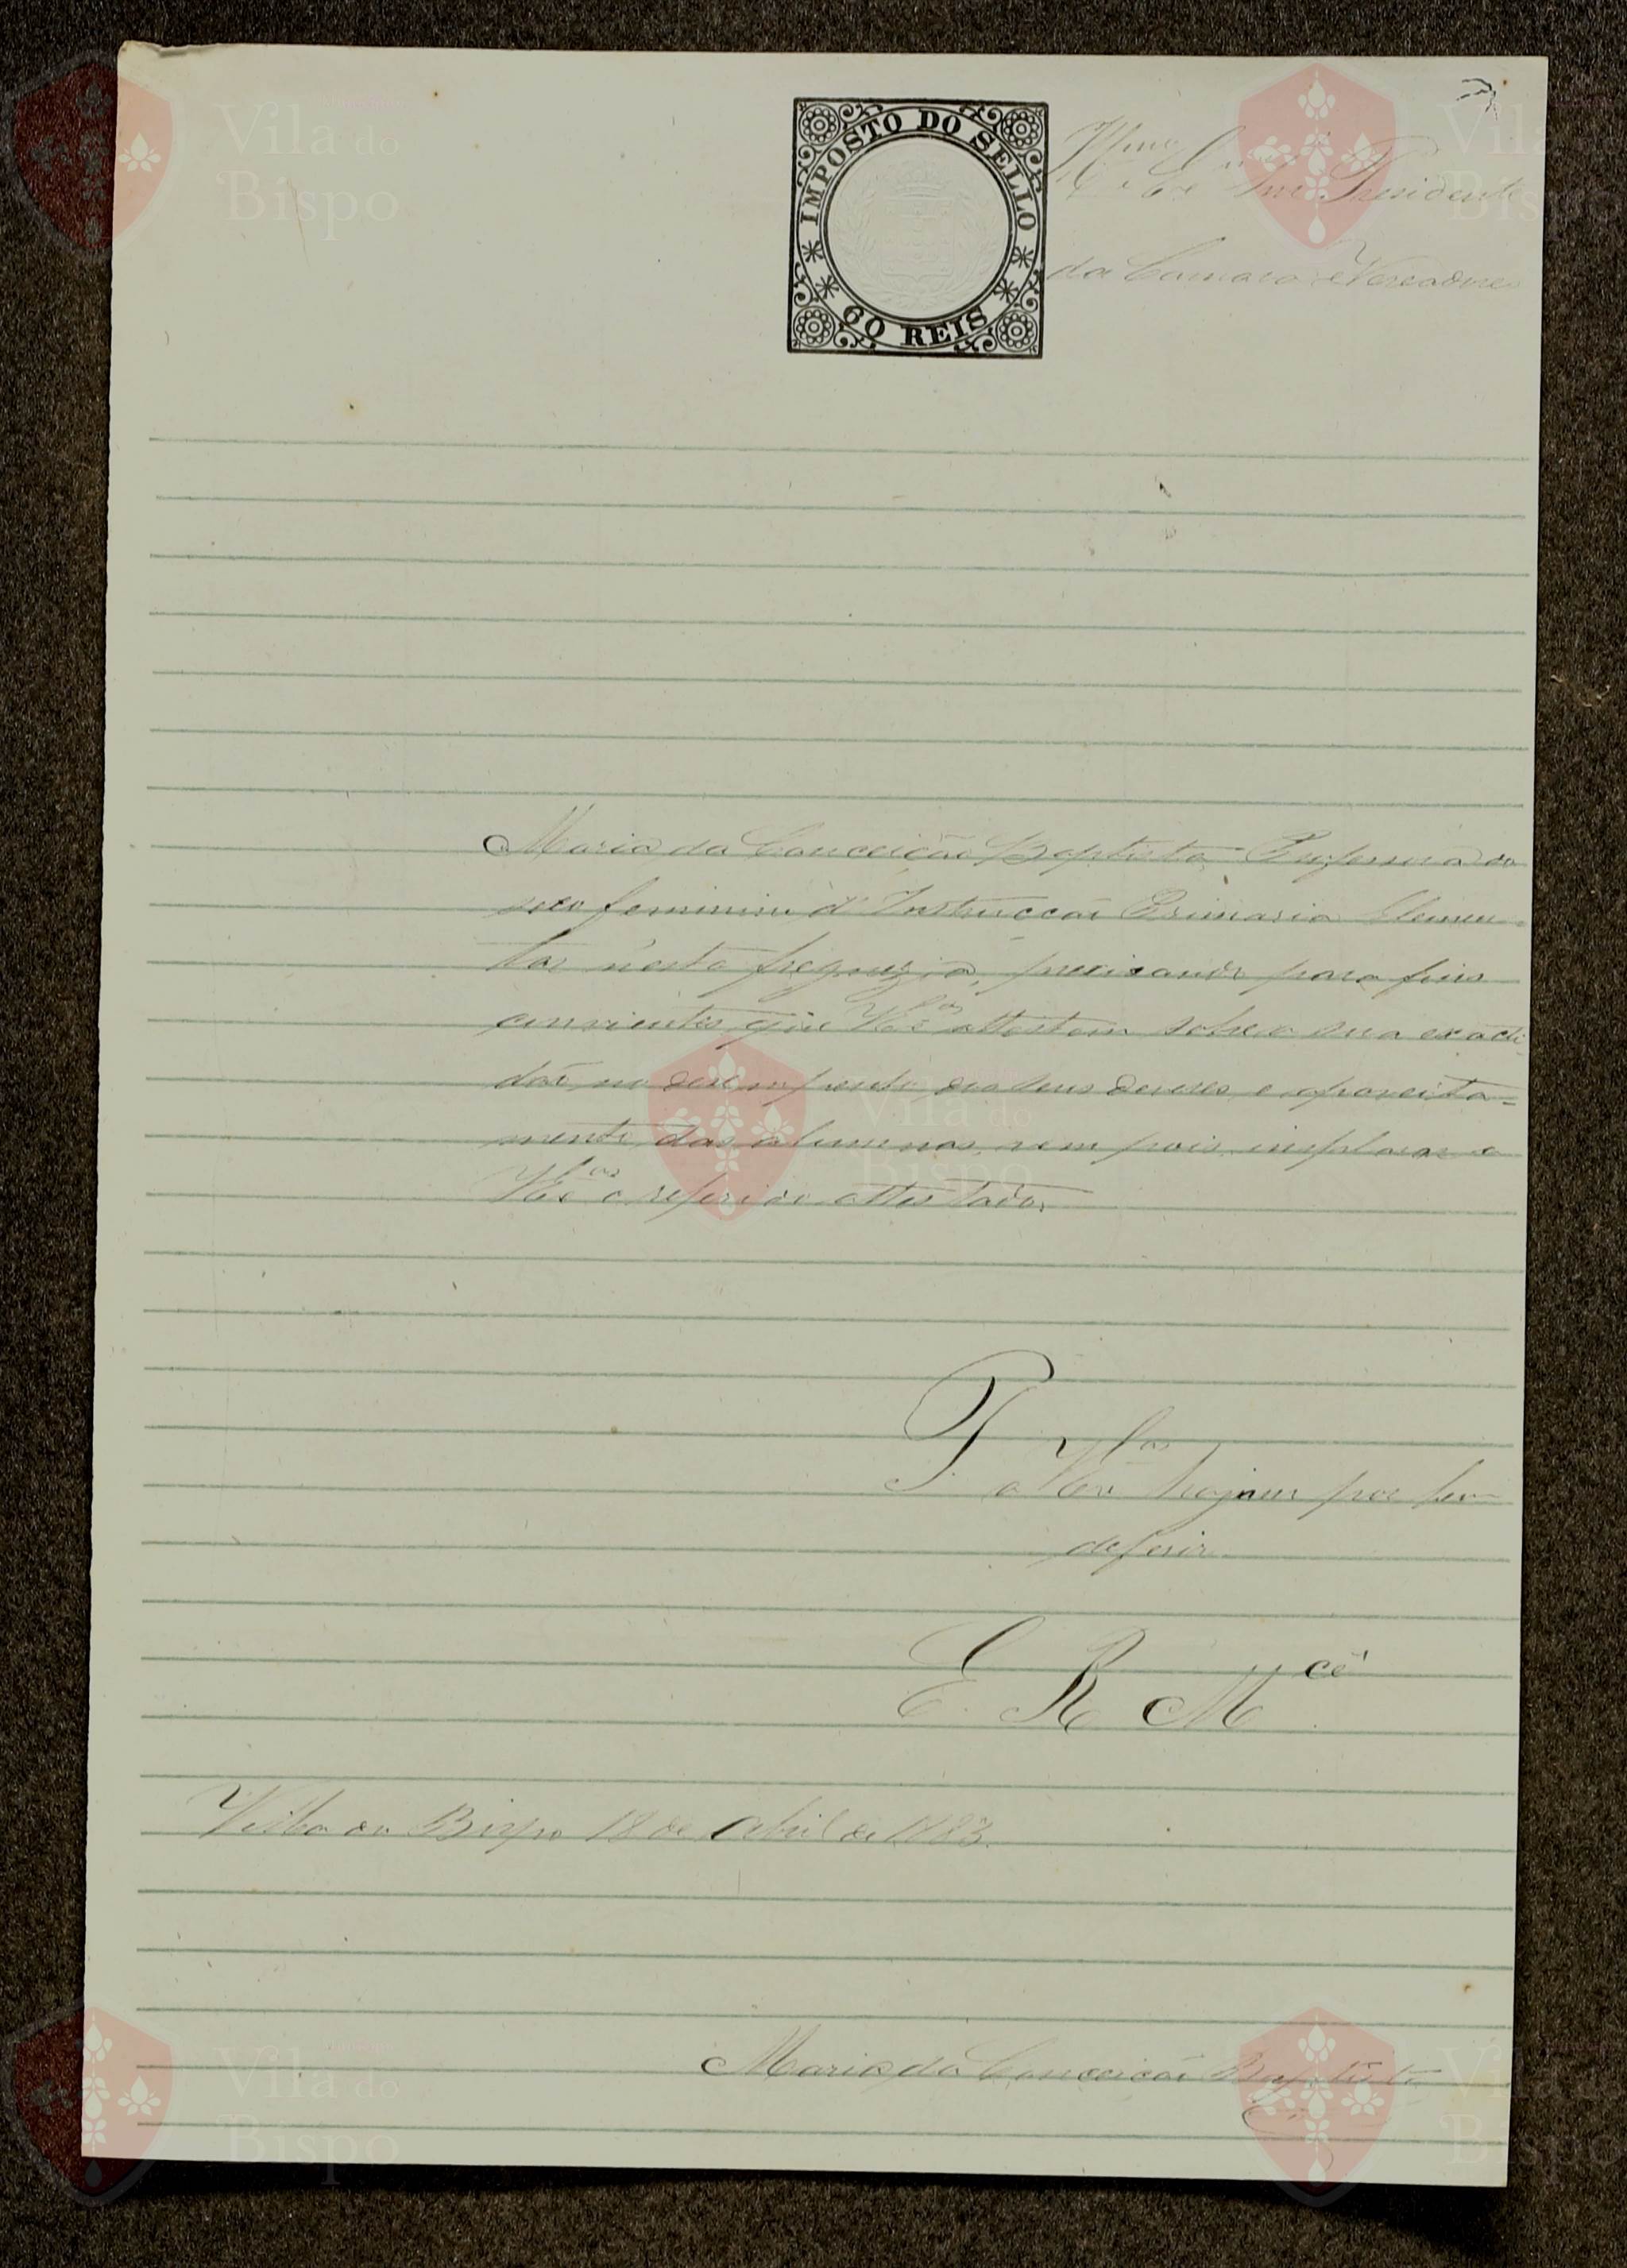 IMPOSTO DO SELLO
60 REIS
Illmo Exmo Snr Presidente
da Camara e Vereadores
Maria da Conceição Baptista Professora do
sexo feminino d'Instrucção Primaria Elemen-
tar n'esta freguezia, precisando para fins
convenientes que V Ex.as attestem sobre a sua exacti-
dão no desempenho dos seus deveres e aproveita=
mento das alumnas, vem pois implorar a
V Ex.as o referido attestado.
P. a V Ex.as hajam por bem
deferir
E. R. M.cê
Villa do Bispo 18 de Abril de 1883.
Maria da Conceição Baptista
Vila do Bispo
Vila do Bispo
Vila do Bispo